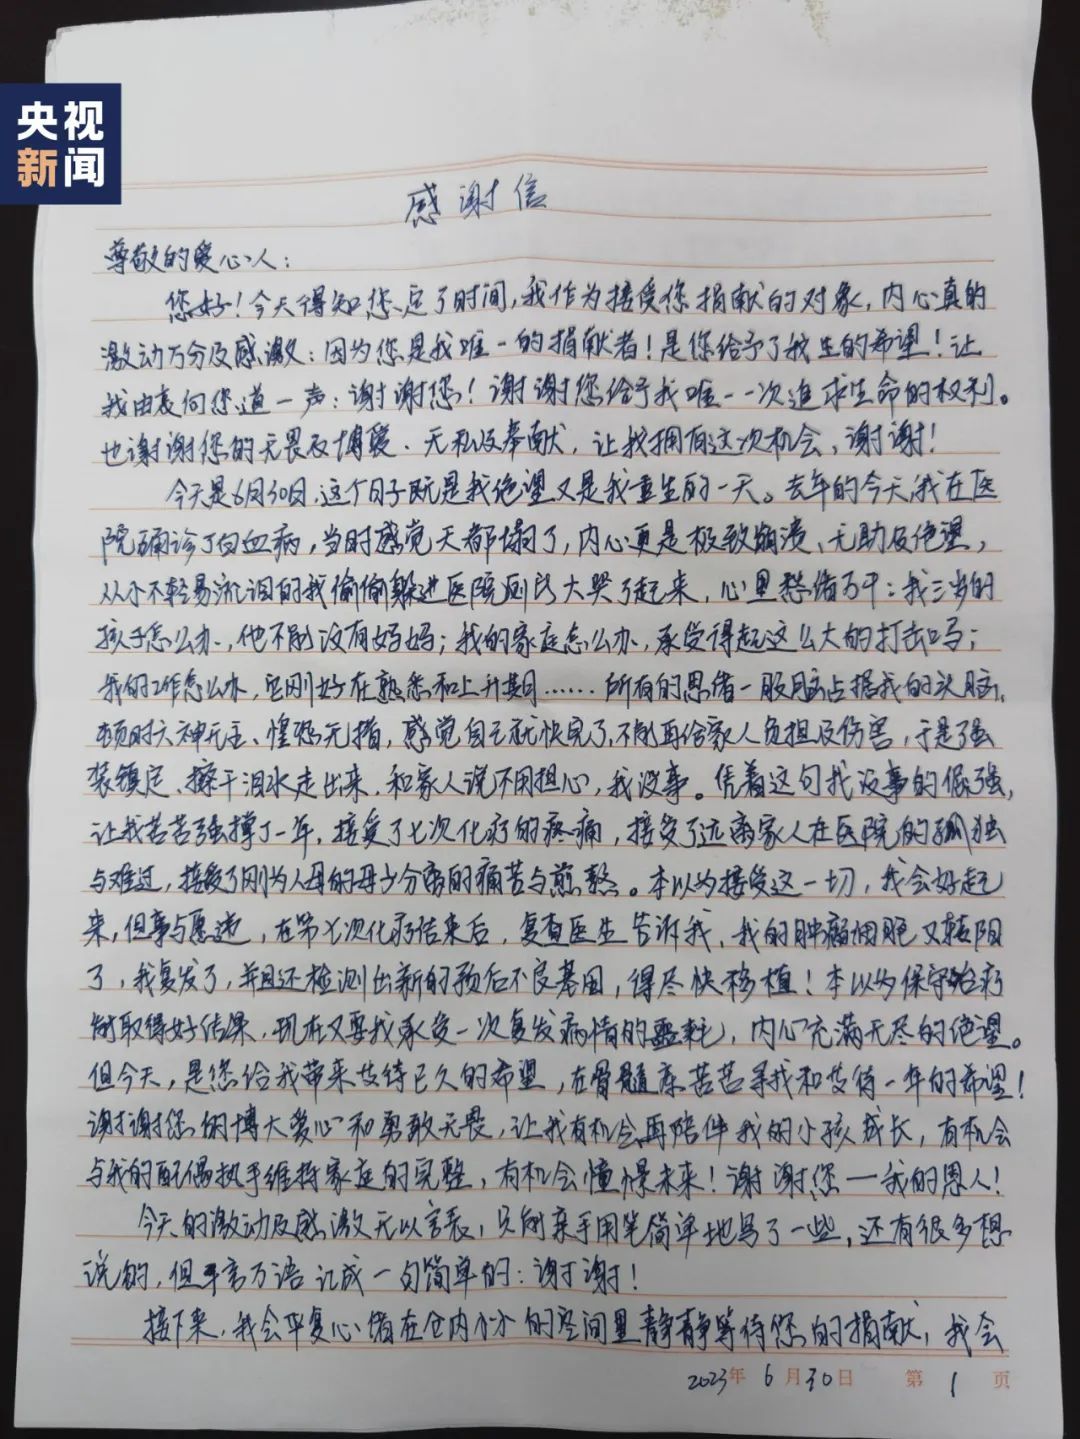 央视
新闻
感谢信
尊敬的爱心人：
您好！今天得知您定了时间，我作为接受您捐献的对象，内心真的
激动万分及感激：因为您是我唯一的捐献者！是您给予了我生的希望！让
我由衷向您道一声：谢谢您！谢谢您给予我唯一一次追求生命的权利。
也谢谢您的无畏及博爱、无私及奉献，让我拥有这次机会，谢谢！
今天是6月30日，这个日子既是我绝望又是我重生的一天。去年的今天，我在医
院确诊了白血病，当时感觉天都塌了，内心更是极致崩溃、无助及绝望，
从小不轻易流泪的我偷偷躲进医院厕所大哭了起来，心里愁绪万千：我三岁的
孩子怎么办，他不能没有妈妈；我的家庭怎么办，承受得起这么大的打击吗；
我的工作怎么办，它刚好在熟悉和上升期……所有的思绪一股脑占据我的头脑，
顿时六神无主、惶恐无措，感觉自己就快完了，不能再给家人负担及伤害，于是强
装镇定、擦干泪水走出来，和家人说不用担心，我没事。凭着这句我没事的倔强，
让我苦苦强撑了一年，接受了七次化疗的疼痛，接受了远离家人在医院的孤独
与难过，接受了刚为人母的母子分离的痛苦与煎熬。本以为接受这一切，我会好起
来，但事与愿违，在第七次化疗结束后，复查医生告诉我，我的肿瘤细胞又转阳
了，我复发了，并且还检测出新的预后不良基因，得尽快移植！本以为保守治疗
能取得好结果，现在又要我承受一次复发病情的噩耗，内心充满无尽的绝望。
但今天，是您给我带来期待已久的希望，在骨髓库苦苦寻找和期待一年的希望！
谢谢您的博大爱心和勇敢无畏，让我有机会再陪伴我的小孩成长，有机会
与我的配偶执手维持家庭的完整，有机会憧憬未来！谢谢您—我的恩人！
今天的激动及感激无以言表，只能亲手用笔简单地写了一些，还有很多想
说的，但千言万语汇成一句简单的：谢谢！
接下来，我会平复心绪在仓内小小的空间里静静等待您的捐献，我会
2023年 6月30日 第 1 页